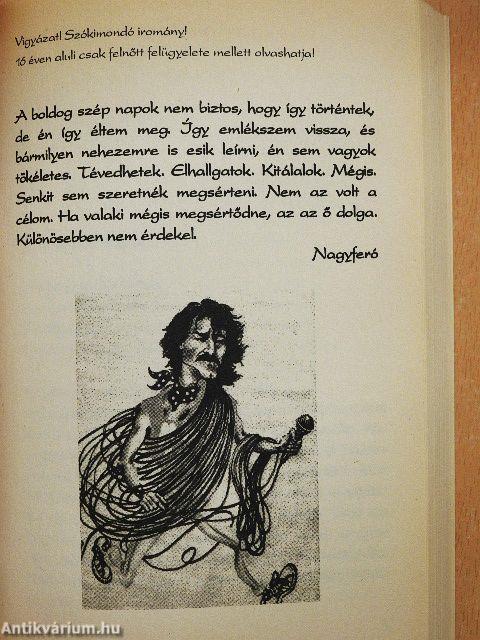 Vigyázat! Szókimondó iromány!
16 éven aluli csak felnőtt felügyelete mellett olvashatja!
A boldog szép napok nem biztos, hogy így történtek,
de én így éltem meg. Így emlékszem vissza, és
bármilyen nehezemre is esik leírni, én sem vagyok
tökéletes. Tévedhetek. Elhallgatok. Kitálalok. Mégis.
Senkit sem szeretnék megsérteni. Nem az volt a
célom. Ha valaki mégis megsértődne, az az ő dolga.
Különösebben nem érdekel.
Nagyferó
Antikvárium.hu